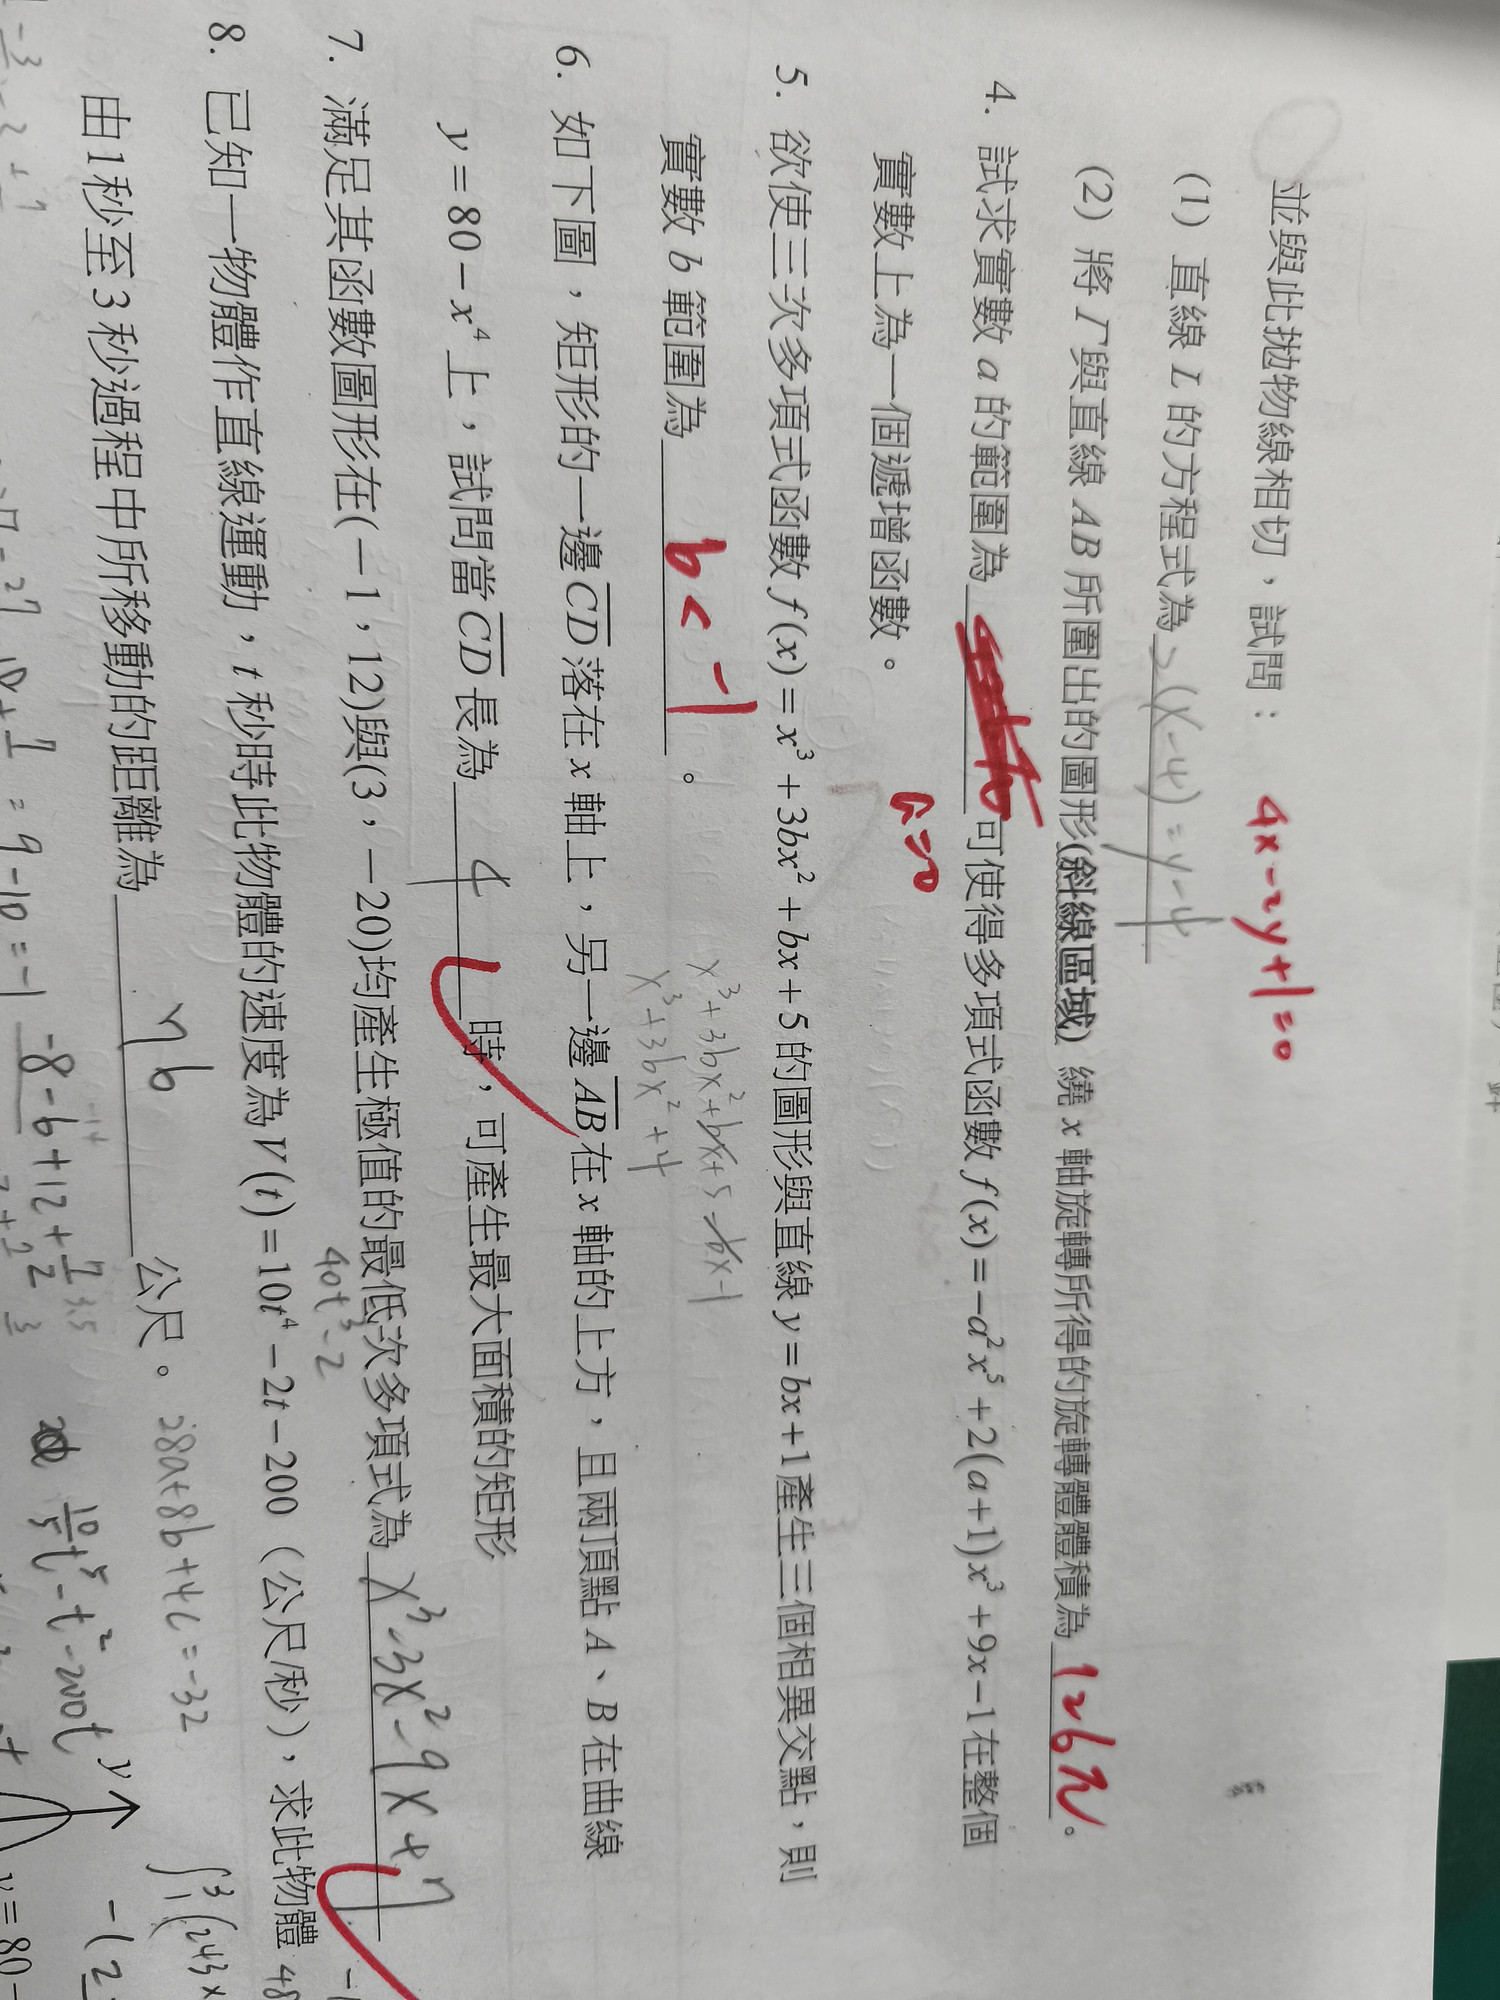 並與此拋物線相切，試問：
4x-2y+1=0
(1) 直線 L 的方程式為 (x-4)=y-4
(2) 將 Γ 與直線 AB 所圍出的圖形(斜線區域) 繞 x 軸旋轉所得的旋轉體體積為 126π 。
4. 試求實數 a 的範圍為 可使得多項式函數 f(x)=-a²x⁵+2(a+1)x³+9x-1在整個
a=0
實數上為一個遞增函數。
5. 欲使三次多項式函數 f(x)=x³+3bx²+bx+5 的圖形與直線 y=bx+1產生三個相異交點，則
實數 b 範圍為 b<-1 。
x³+3bx²+bx+5-bx-1
x³+3bx²+4
6. 如下圖，矩形的一邊 CD 落在 x 軸上，另一邊 AB 在 x 軸的上方，且兩頂點 A、B 在曲線
y=80-x⁴ 上，試問當 CD 長為 4 時，可產生最大面積的矩形
7. 滿足其函數圖形在(-1,12)與(3,-20)均產生極值的最低次多項式為 x³-3x²-9x+7
40t³-2
8. 已知一物體作直線運動，t 秒時此物體的速度為 V(t)=10t⁴-2t-200（公尺/秒），求此物體
48
由1秒至3秒過程中所移動的距離為 76 公尺。
28a+8b+4c=-32
=9-10=-1
-8-6+12+
10/5 t⁵-t²-200t
y
∫₁³(243×